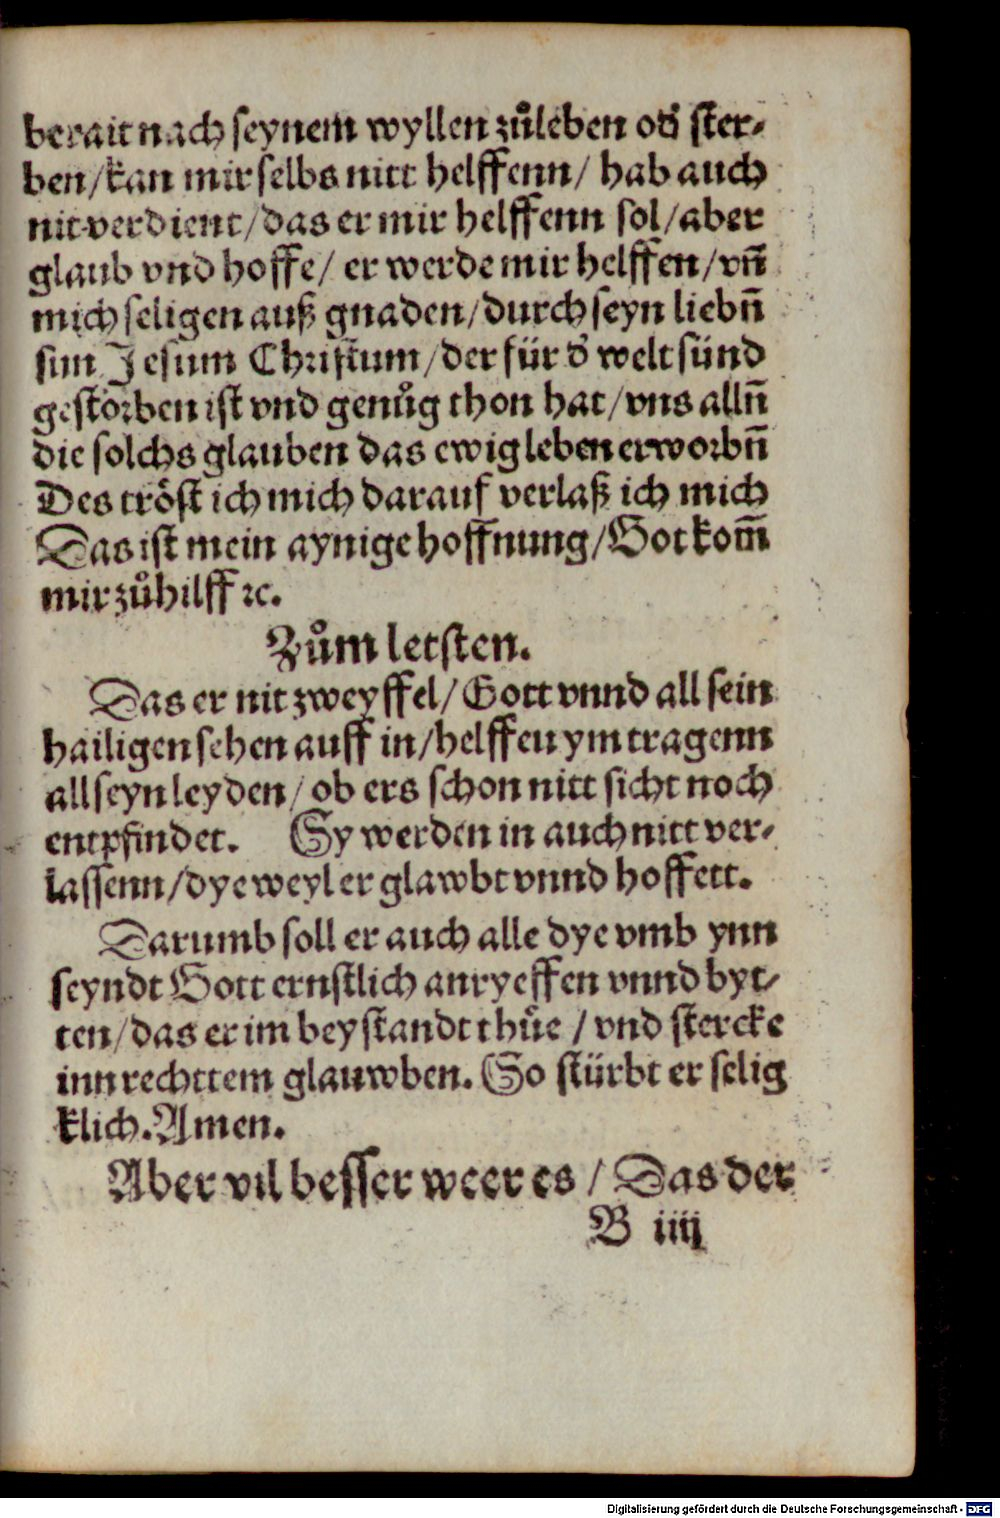 berait nach seynem wyllen zůleben od̕ ster⸗
ben/kan mir selbs nitt helffenn/ hab auch
nit verdient/das er mir helffenn sol/aber
glaub vnd hoffe/ er werde mir helffen/vñ
mich seligen auß gnaden/durch seyn liebñ
sun Jesum Christum/der für d̕ welt sünd
gestorben ist vnd genůg thon hat/vns allñ
die solchs glauben das ewig leben erworbñ
Des tröst ich mich darauf verlaß ich mich
Das ist mein aynige hoffnung/Got kom̃
mir zůhilff ꝛc.
Zům letsten.
Das er nit zweyffel/Gott vnnd all sein
hailigen sehen auff in/helffen ym tragenn
all seyn leyden/ob ers schon nitt sicht noch
entpfindet. Sy werden in auch nitt ver⸗
lassenn/dye weyl er glawbt vnnd hoffett.
Darumb soll er auch alle dye vmb ynn
seyndt Gott ernstlich anryeffen vnnd byt⸗
ten/das er im beystandt thůe / vnd stercke
inn rechttem glauwben. So stürbt er selig
klich. Amen.
Aber vil besser weer es / Das der
B iiij
Digitalisierung gefördert durch die Deutsche Forschungsgemeinschaft - DFG